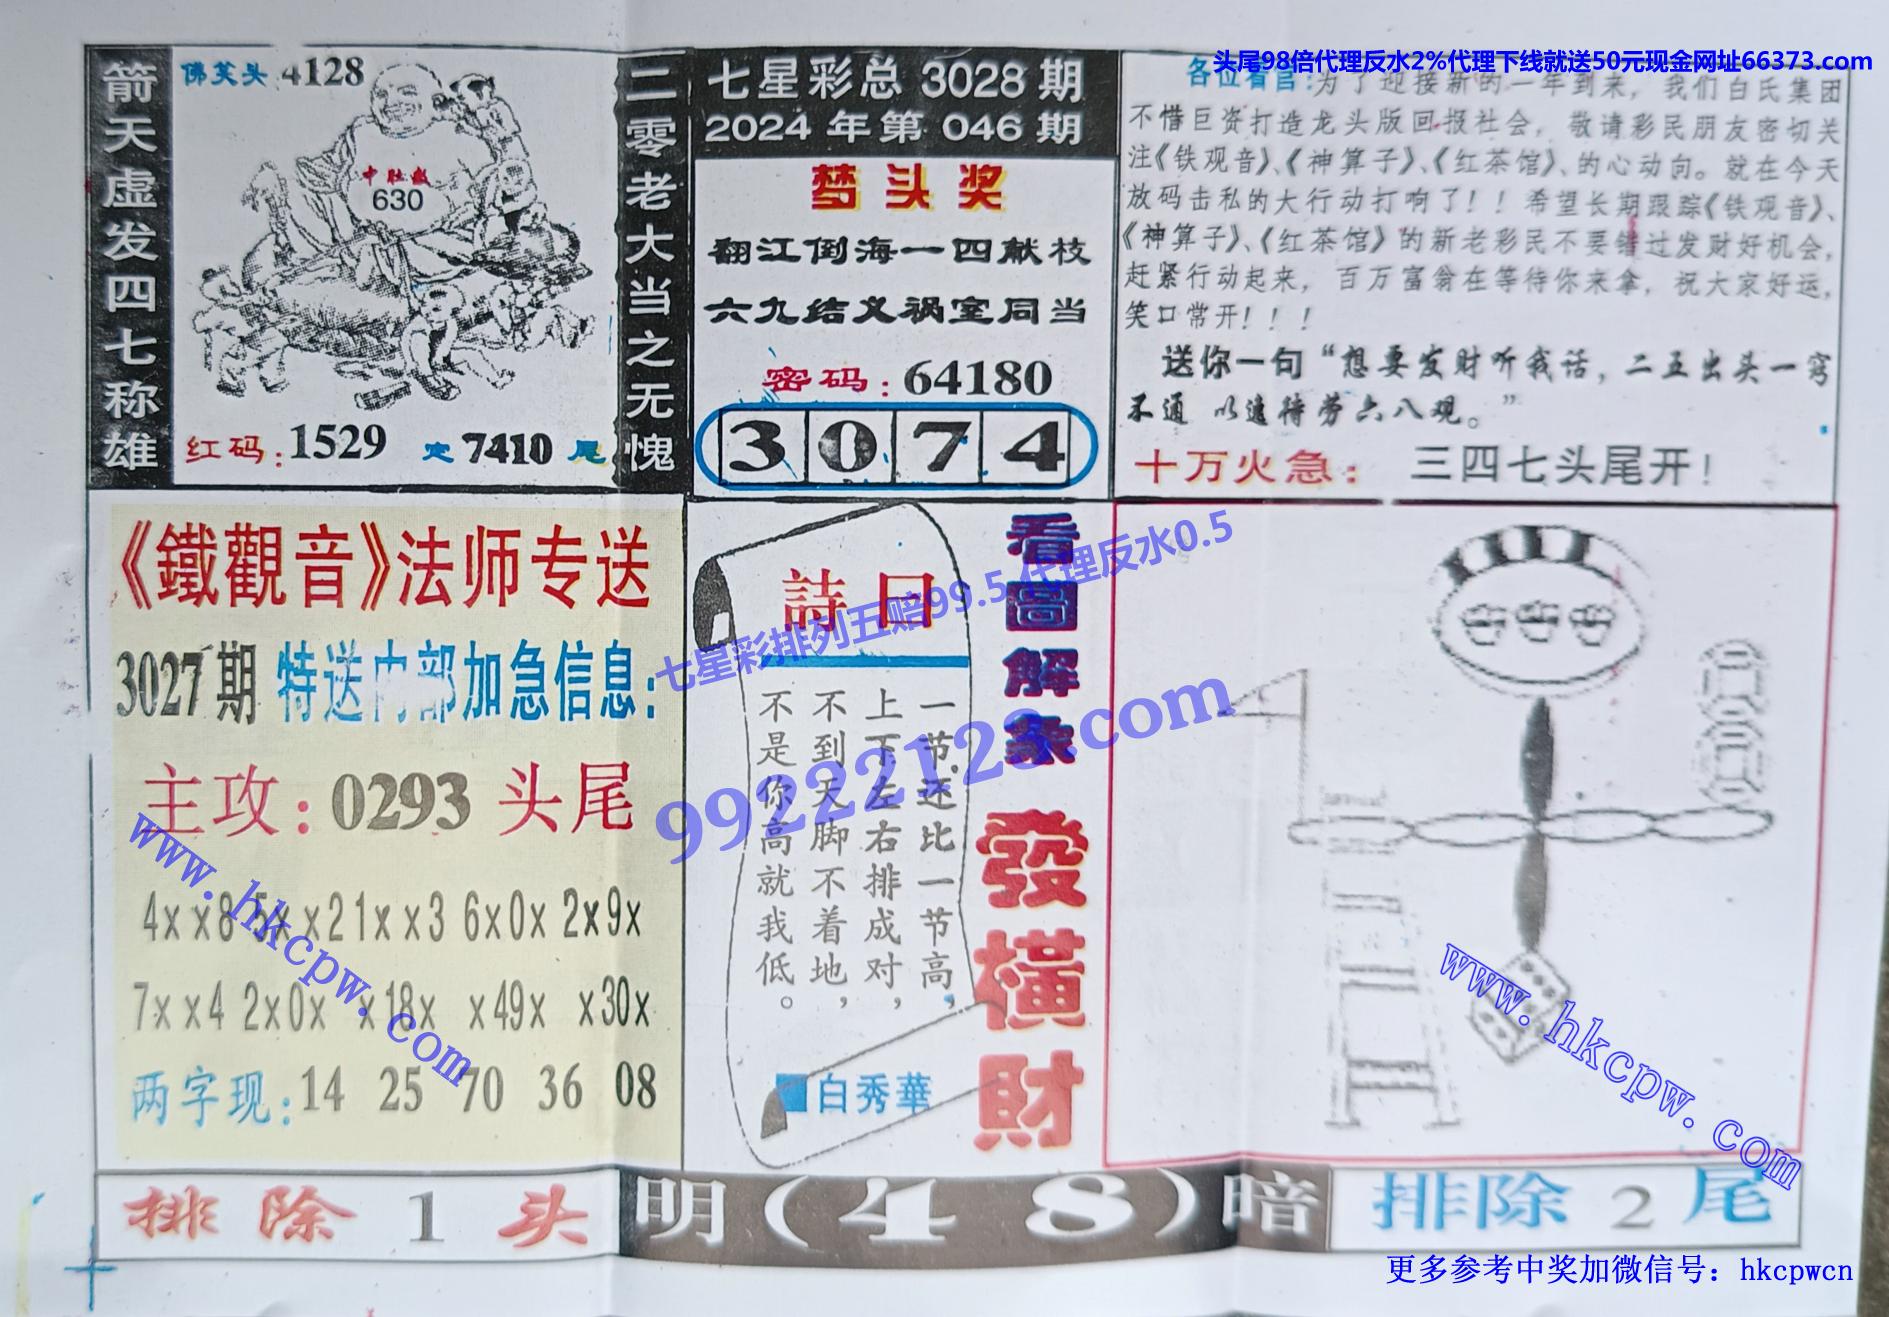 头尾98倍代理反水2%代理下线就送50元现金网址66373.com
箭天虚发四七称雄
佛笑头 4128
中肚数
630
红码：1529 定 7410 尾
二零老大当之无愧
七星彩总 3028 期
2024 年第 046 期
梦头奖
翻江倒海一四献枝
六九结义祸室同当
密码：64180
3 0 7 4
各位看官：为了迎接新的一年到来，我们白氏集团
不惜巨资打造龙头版回报社会，敬请彩民朋友密切关
注《铁观音》、《神算子》、《红茶馆》、的心动向。就在今天
放码击私的大行动打响了！！希望长期跟踪《铁观音》、
《神算子》、《红茶馆》的新老彩民不要错过发财好机会，
赶紧行动起来，百万富翁在等待你来拿，祝大家好运，
笑口常开！！！
送你一句“想要发财听我话，二五出头一穷
不通 以逸待劳六八观。”
十万火急： 三四七头尾开！
《鐵觀音》法师专送
3027期 特送内部加急信息：
主攻：0293 头尾
4xx8 5xx2 1xx3 6x0x 2x9x
7xx4 2x0x x18x x49x x30x
两字现：14 25 70 36 08
詩曰
一节还比一节高，
上下左右排成对，
不到天脚不着地，
不是你高就我低。
白秀華
看圖解象
發橫財
七星彩排列五赔99.5 代理反水0.5
99222123.com
www.hkcpw.com
www.hkcpw.com
排除 1 头
明(48)暗
排除 2 尾
更多参考中奖加微信号：hkcpwcn